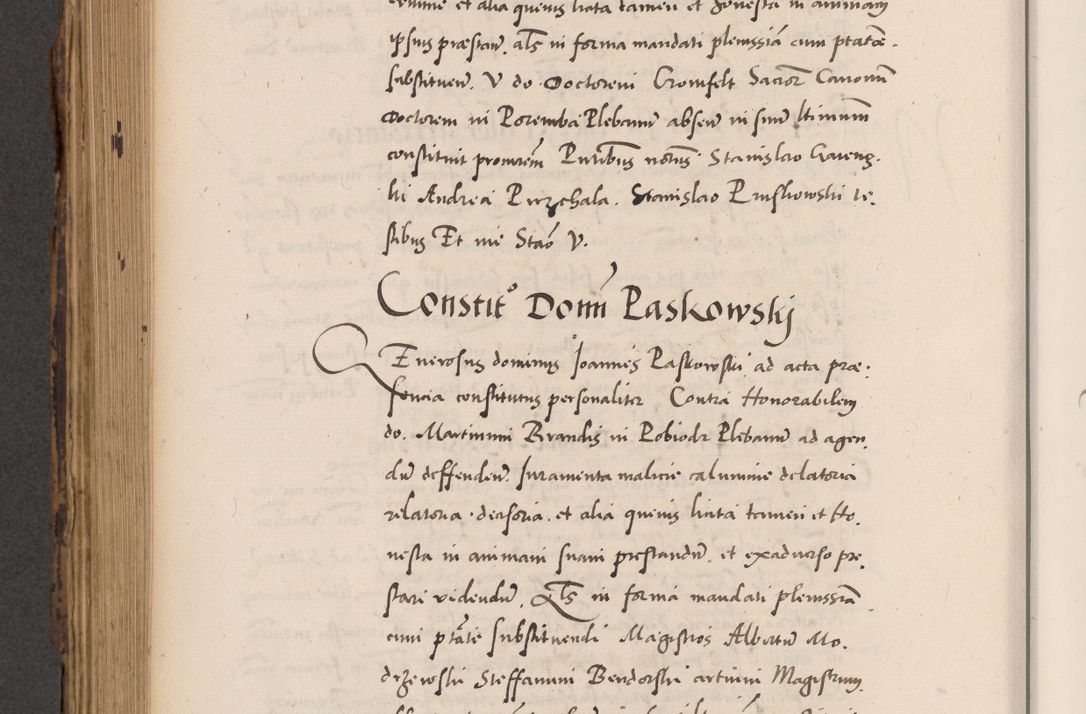 et alia quevis licita tamen et honesta in animam
ipsius præstan̄. al̄s in forma mandati plenissiā cum ptatōe.
substituen̄. V do. Doctorem Cromfelt Sacror̄ Canonū
Doctorem in Poremba Plebanū absen̄ in suū ltimum
constituit procutem̄ Puribus notis Stanislao Gaveng.
ki Andrea Purzchala. Stanislao Pruskowski te.
stibus Et me Stāo V.
Constit° Dom̄ Paskowskj
Enerosus dominus Joannes Paskowski ad acta præ.
sencia constitutus personaliter Contra Honorabilem
do. Martinum Brandis in Pobiedr Plebanū ad agen.
dū deffenden̄. Juramenta malicie calumnie delatoria
relatoria. decisoria. et alia quevis licita tamen et Ho.
nesta in animam suam prestandū. et exadverso pre.
stari videndū. Al̄s in forma mandati plenissiā
cum ptāte substituendi Magistros Albertū Mo.
drzewski Steffanum Bendorski artium Magistrum